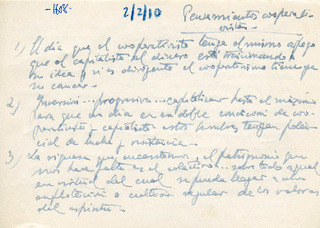 -HOK-
2/2/10
Pensamientos cooperati-
vistas.
1) El día que el cooperativista tenga el mismo apego
que el capitalista al dinero está traicionando a
su idea y si es dirigente el cooperativismo tiene ya
su cáncer.
2) Inversión... progresiva... capitalizar hasta el máximo
para que un día en su doble condición de coo-
perativista y capitalista estos hombres tengan poten-
cial de lucha y resistencia.
3) La riqueza que necesitamos, el patrimonio que
nos hace falta es el colectivo sobre todo aquel
en virtud del cual se pueda llegar a una
explotación o cultivo regular de los valores
del espíritu.